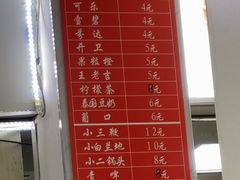 可乐 4元
雪碧 4元
芬达 4元
开卫 5元
果粒橙 5元
王老吉 5元
柠檬茶 8元
泰国豆奶 6元
菊口 6元
小三鞭 12元
小白兰地 10元
小二锅头 8元
青啤 8元